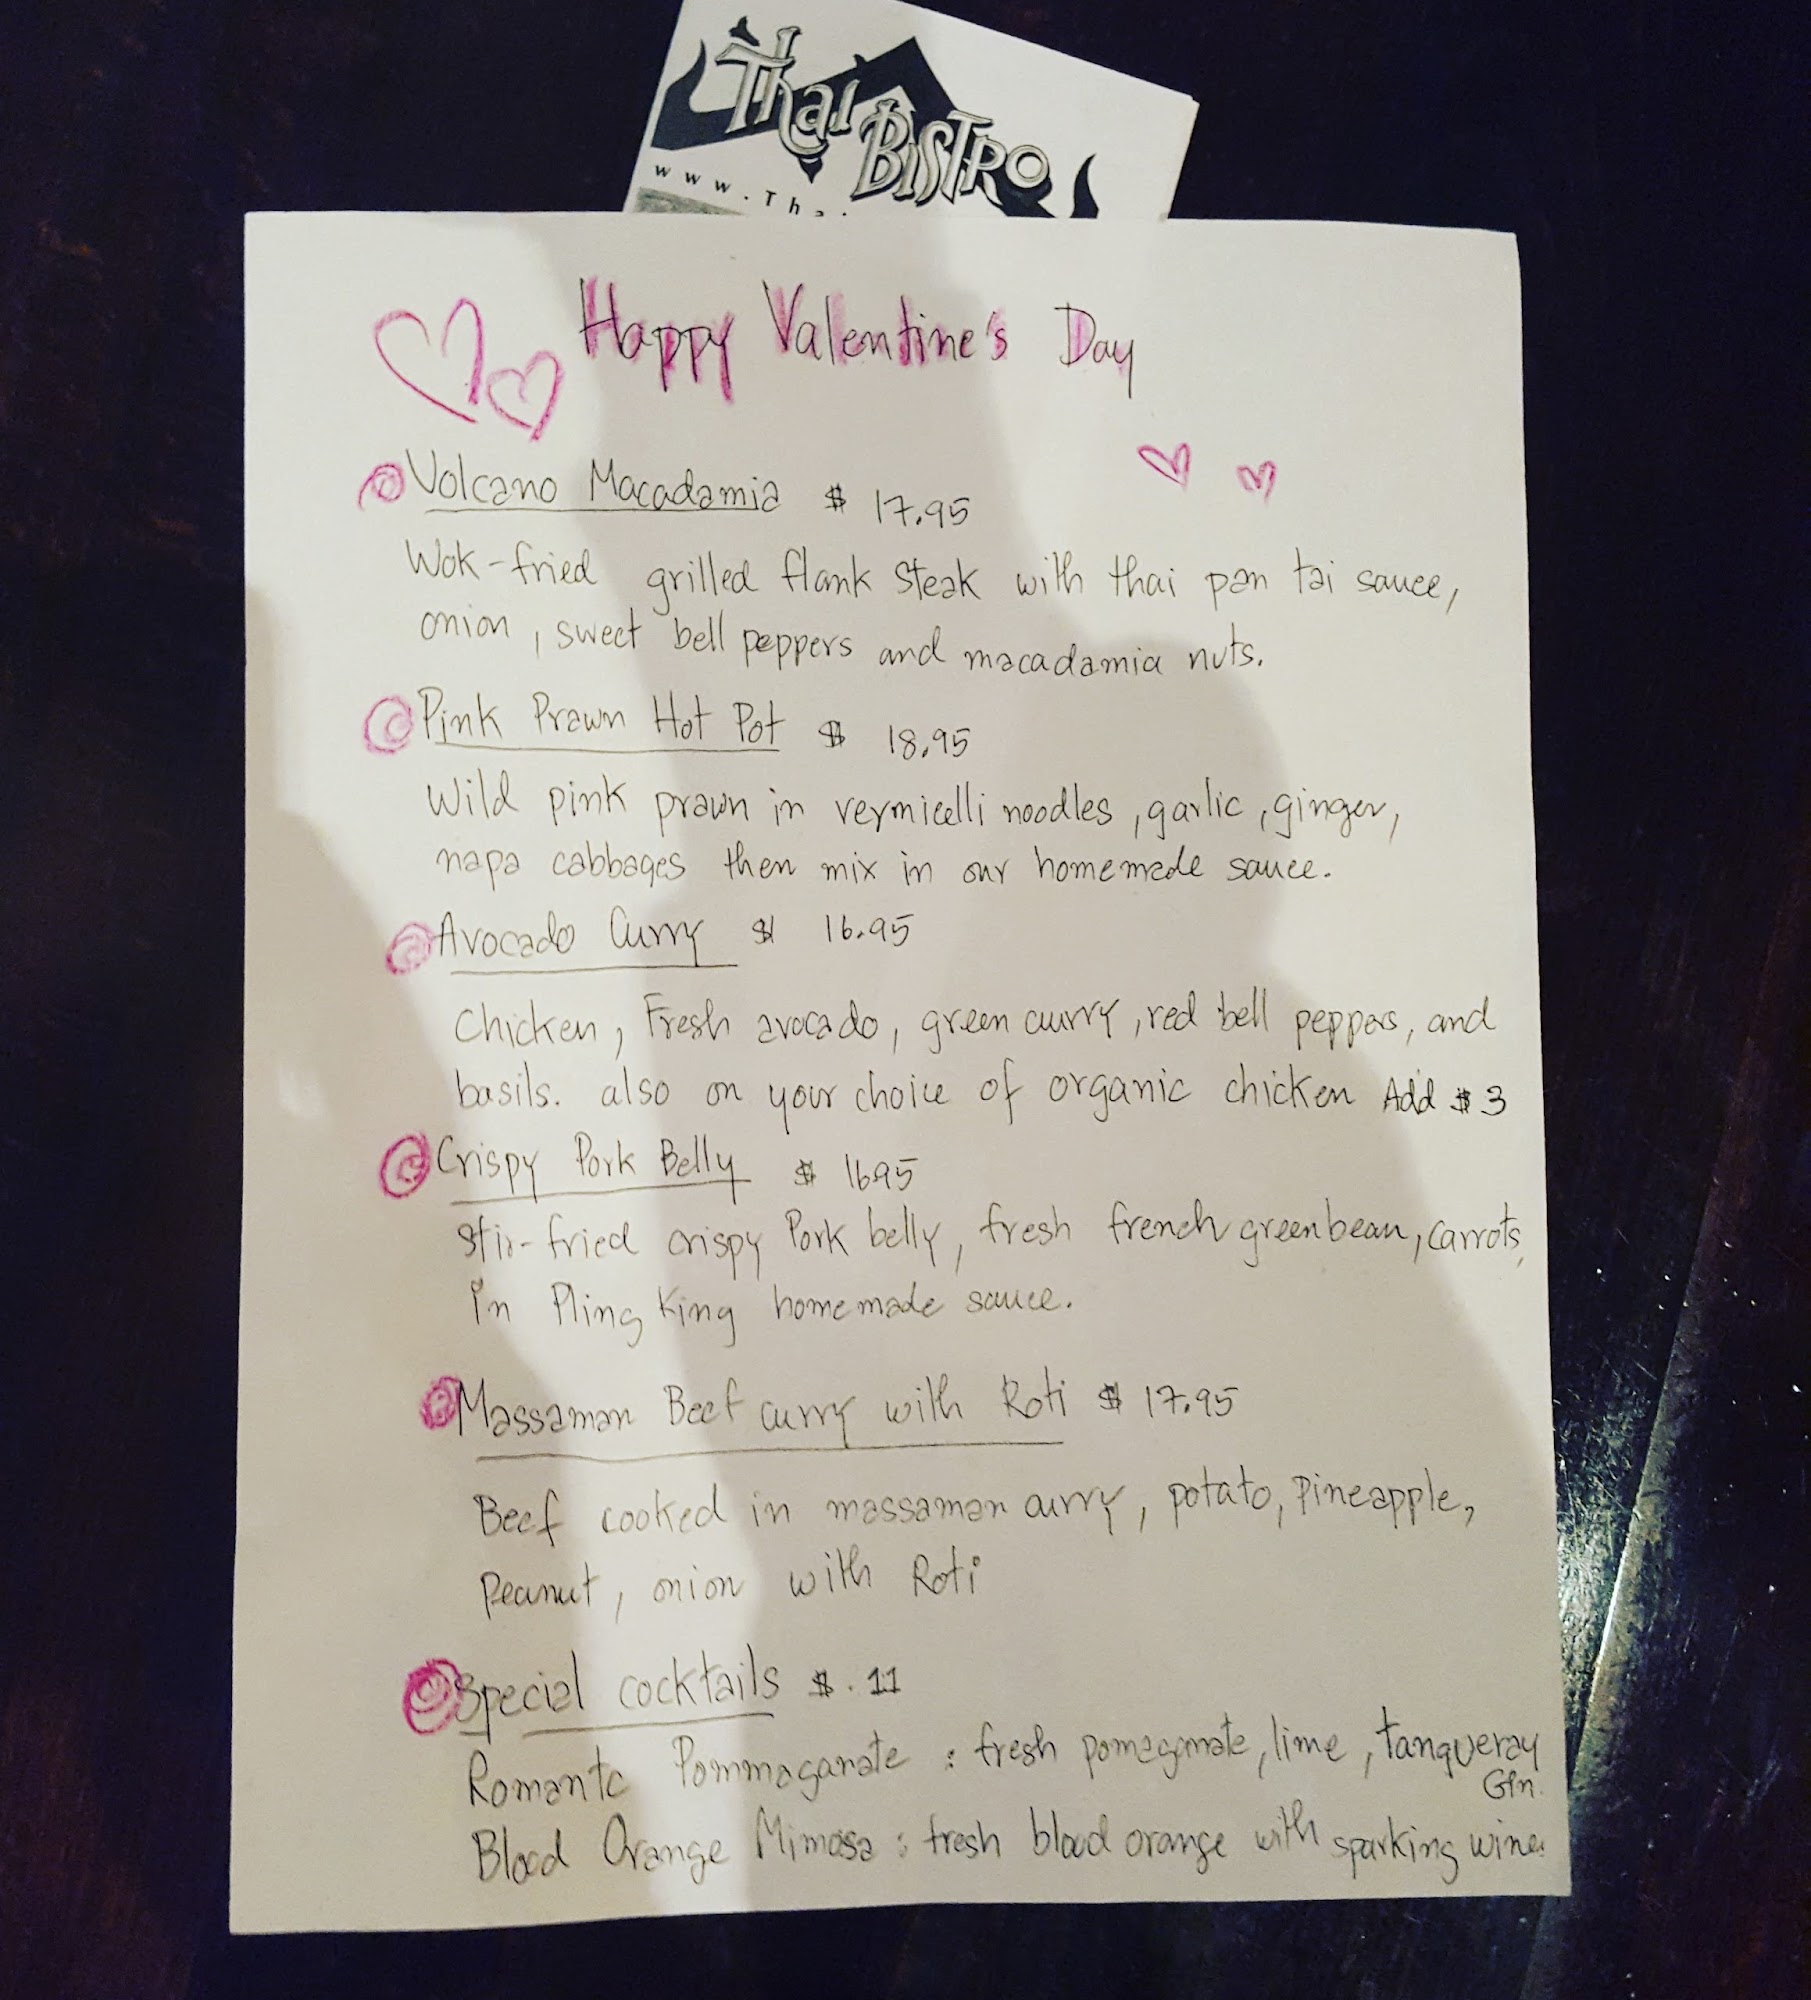 Thai BiSTRO
www.Thai
Happy Valentine's Day
Volcano Macadamia $ 17.95
Wok-fried grilled flank steak with thai pan tai sauce,
onion, sweet bell peppers and macadamia nuts.
Pink Prawn Hot Pot $ 18.95
Wild pink prawn in vermicelli noodles, garlic, ginger,
napa cabbages then mix in our homemade sauce.
Avocado Curry $ 16.95
Chicken, Fresh avocado, green curry, red bell peppers, and
basils. also on your choice of organic chicken Add $3
Crispy Pork Belly $ 16.95
Stir-fried crispy Pork belly, fresh french green bean, carrots,
in Pling King homemade sauce.
Massaman Beef curry with Roti $ 17.95
Beef cooked in massaman curry, potato, Pineapple,
Peanut, onion with Roti
Special cocktails $. 11
Romantc Pommaganate : fresh pomeganate, lime, tanqueray
Gin.
Blood Orange Mimosa : fresh blood orange with sparking wine.